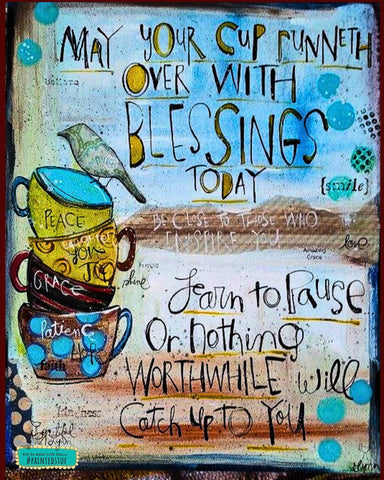 MAY YOUR CUP RUNNETH
OVER WITH
believe
BLESSINGS
TODAY
{smile}
PEACE
BE CLOSE TO THOSE WHO
INSPIRE YOU
laughter
love
JOY
Amazing
Grace
love
GRACE
shine
Learn to Pause
Or nothing
Patience
Hope
faith
WORTHWHILE will
kindness
Catch up to YOU
Beautiful
#PAINTEDSTUF